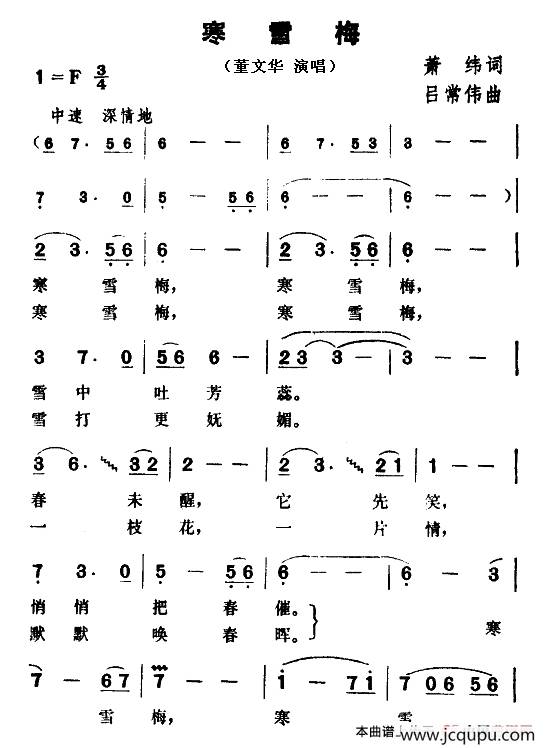 寒雪梅
(董文华 演唱)
1=F 3/4
萧纬词
吕常伟曲
中速 深情地
(6 7. 56 | 6 - - | 6 7. 53 | 3 - - |
7 3. 0 | 5 - 56 | 6 - - | 6 - - ) |
2 3. 56 | 6 - - | 2 3. 56 | 6 - - |
寒 雪梅, 寒 雪梅,
寒 雪梅, 寒 雪梅,
3 7. 0 | 56 6 - | 23 3 - | 3 - - |
雪中 吐芳 蕊。
雪打 更妩 媚。
3 6. 32 | 2 - - | 3 3. 21 | 1 - - |
春 未醒, 它 先笑,
一 枝花, 一 片情,
7 3. 0 | 5 - 56 | 6 - - | 6 - 3 |
悄悄 把春 催。
默默 唤春 晖。 寒
7 - 67 | 7 - - | 1 - 71 | 7 06 56 |
雪 梅, 寒 雪
本曲谱
www.jcqupu.com